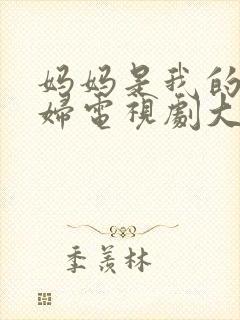 妈妈是我的
婦電視劇大
季羨林